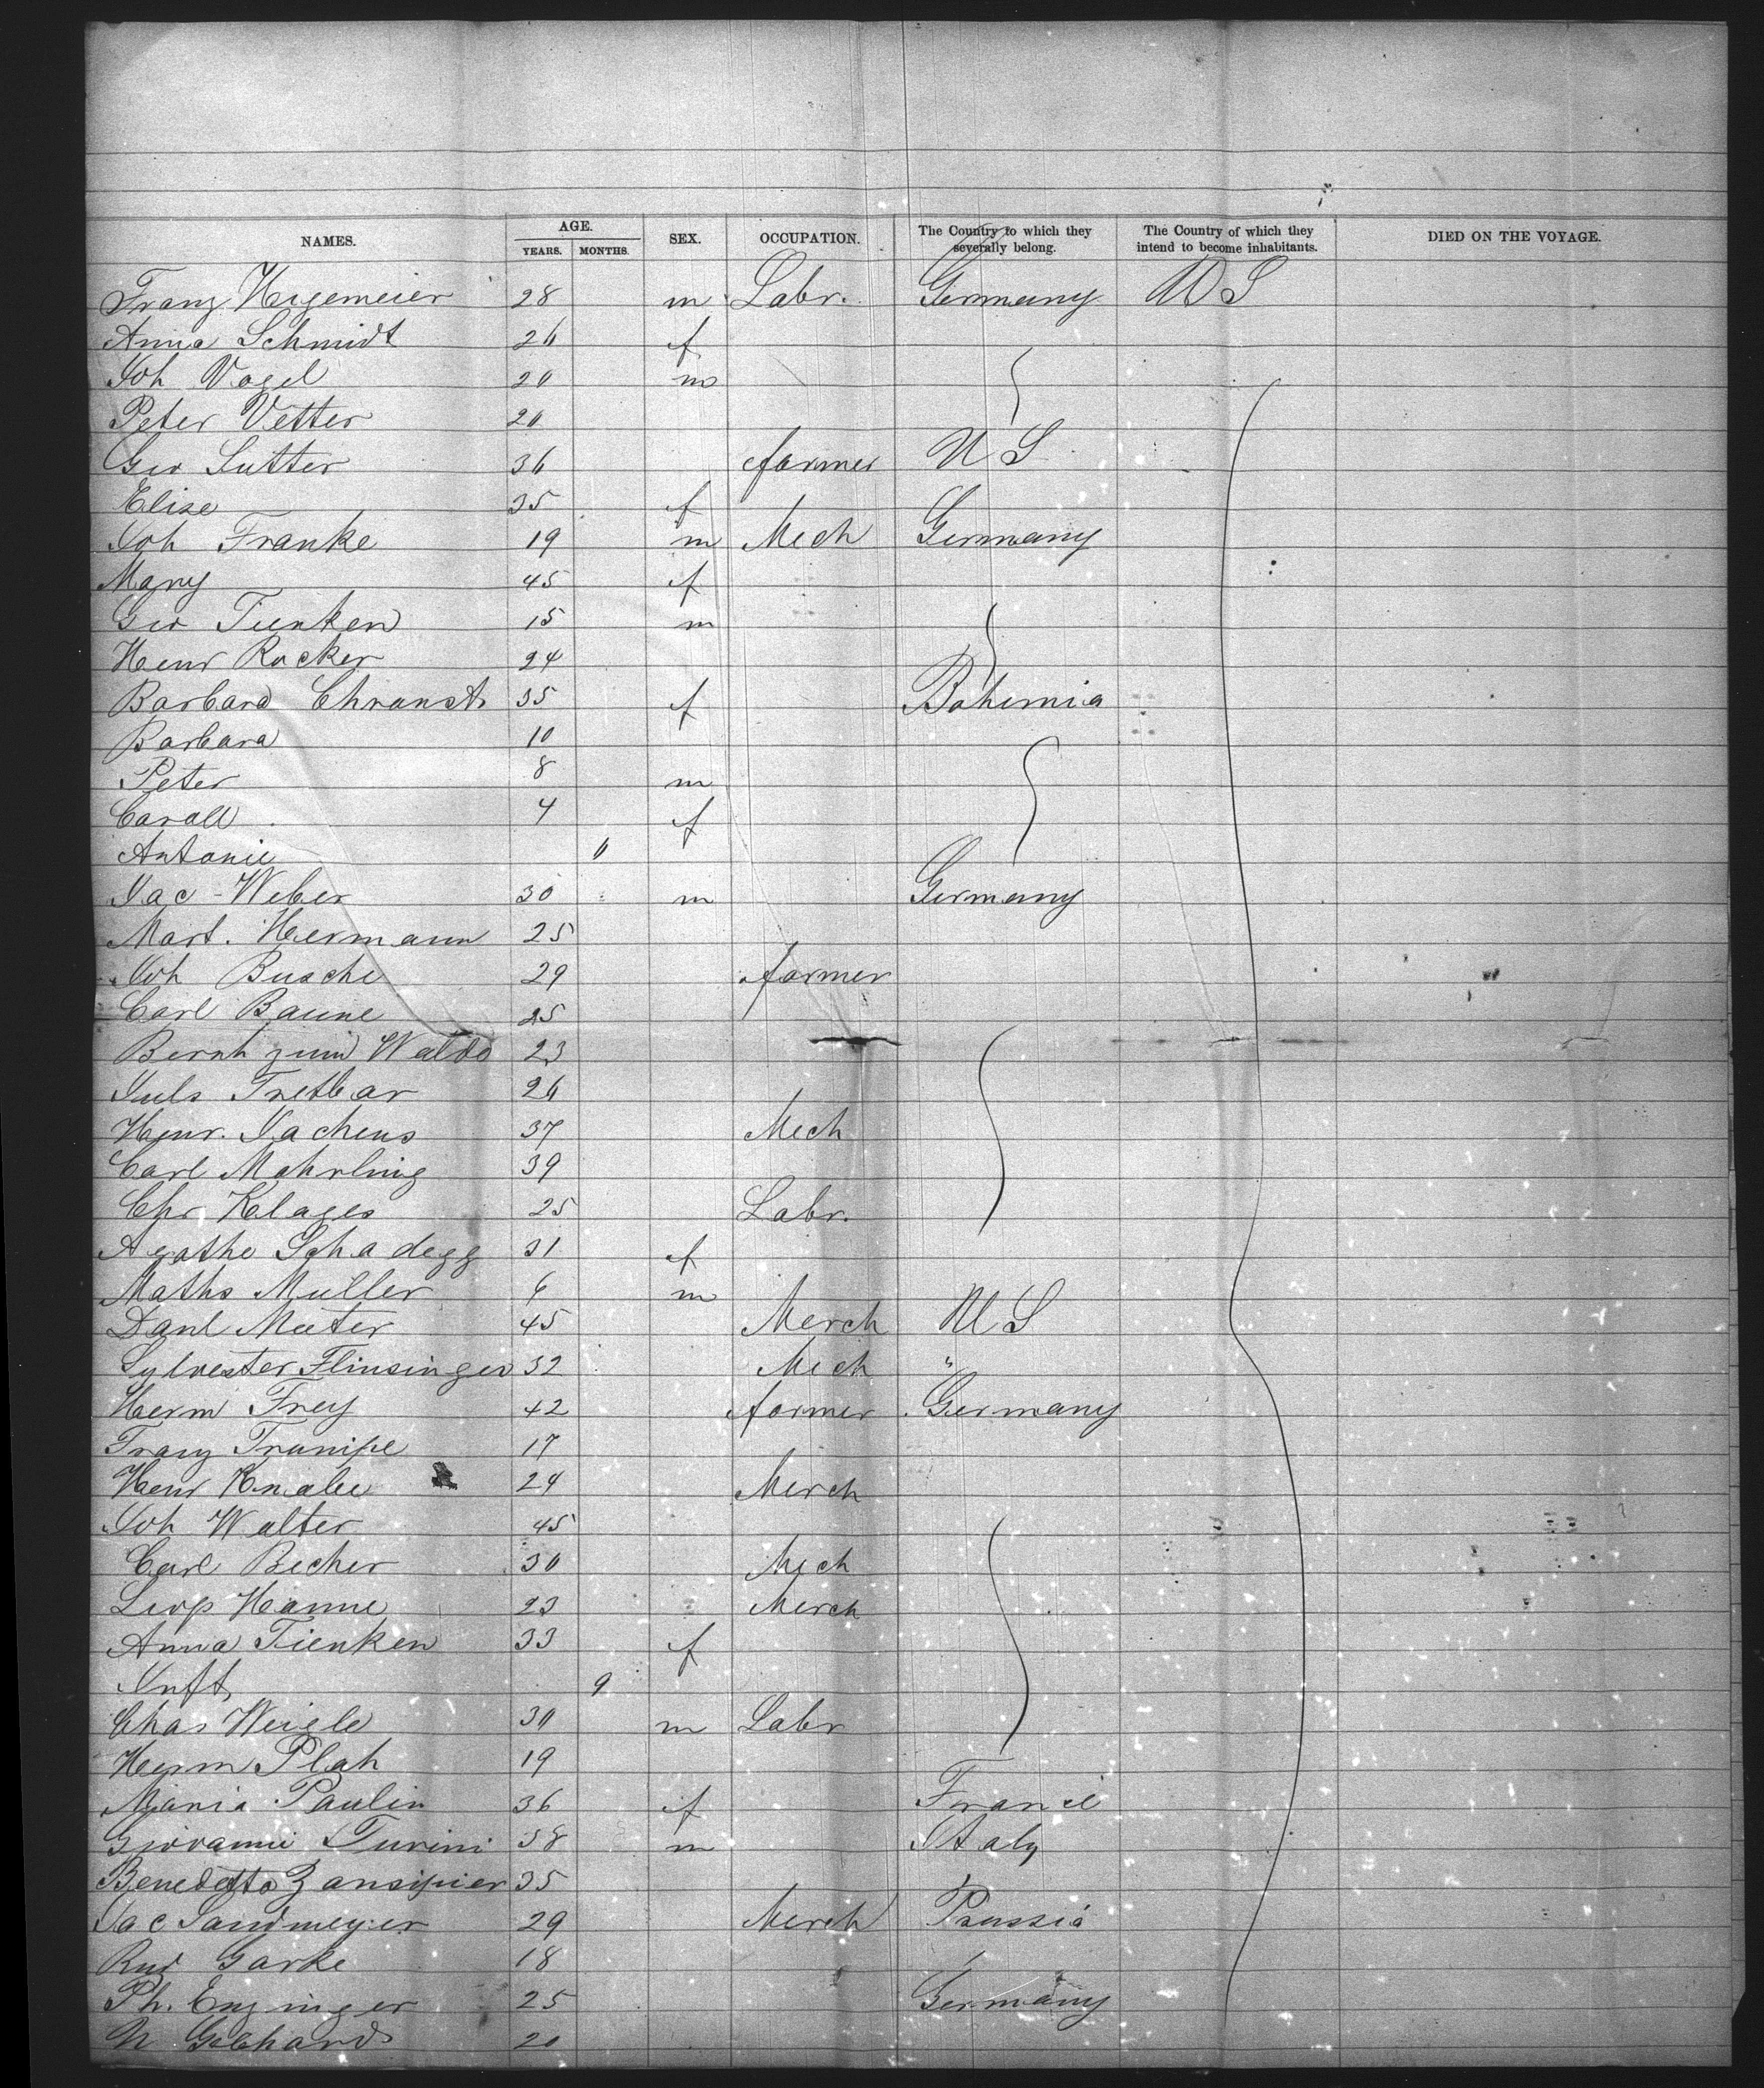 NAMES. AGE. YEARS. MONTHS. SEX. OCCUPATION. The Country to which they severally belong. The Country of which they intend to become inhabitants. DIED ON THE VOYAGE.
Franz Hegemeier 28 m Labr. Germany U S
Anna Schmidt 26 f
Joh Vogel 20 m
Peter Vetter 20
Geo Sutter 36 farmer U S
Elise 35 f
Joh Franke 19 m Mech Germany
Mary 45 f
Geo Tienken 15 m
Henr Rocker 24
Barbara Chranst 35 f Bohemia
Barbara 10
Peter 8 m
Caroll 4 f
Antonie 11
Jac Weber 30 m Germany
Mart. Hermann 25
Joh Busche 29 farmer
Carl Baune 25
Bernh zum Walde 23
Juls Tretbar 26
Henr. Jachens 37 Mech
Carl Mohrling 39
Chr Klages 25 Labr.
Agathe Schadegg 31 f
Maths Muller 6 m
Danl Meeter 45 Merch U S
Sylvester Flinsinger 32 Mech "
Herm Frey 42 farmer Germany
Franz Trumpe 17
Henr Knabe 24 Merch
Joh Walter 45
Carl Becher 30 Mech
Leop Hanne 23 Merch
Anna Tienken 33 f
Inft 9
Chas Weigle 30 m Labr
Herm Plah 19
Maria Paulin 36 f France
Giovanni Turini 38 m Italy
Benedetto 35
Jac Sandmeyer 29 Merch Prussia
Rud Garke 18
Ph. Enzinger 25 Germany
N Gebhards 20